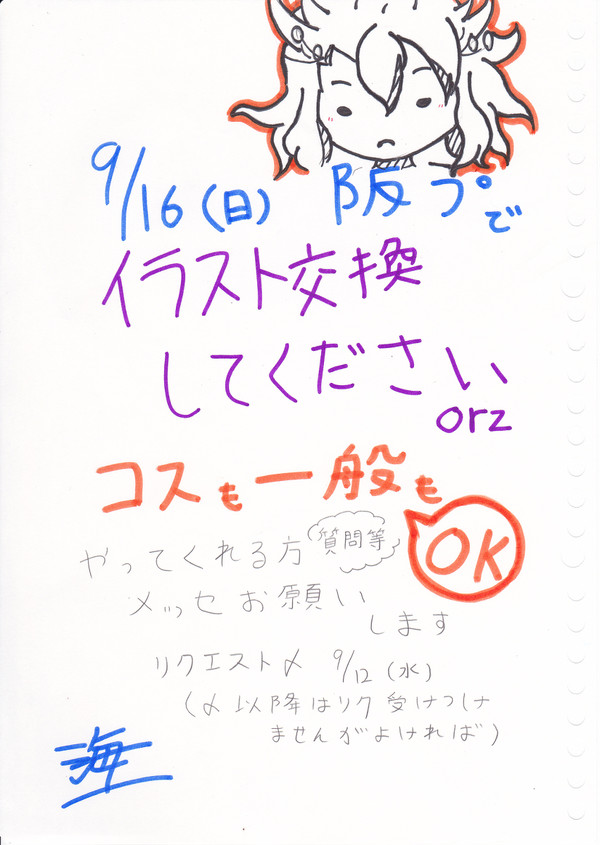 9/16(日) 阪プで
イラスト交換
してください
orz
コスも一般も
OK
やってくれる方 質問等
メッセお願い
します
リクエスト〆 9/12(水)
(〆以降はリク受けつけ
ませんがよければ)
海